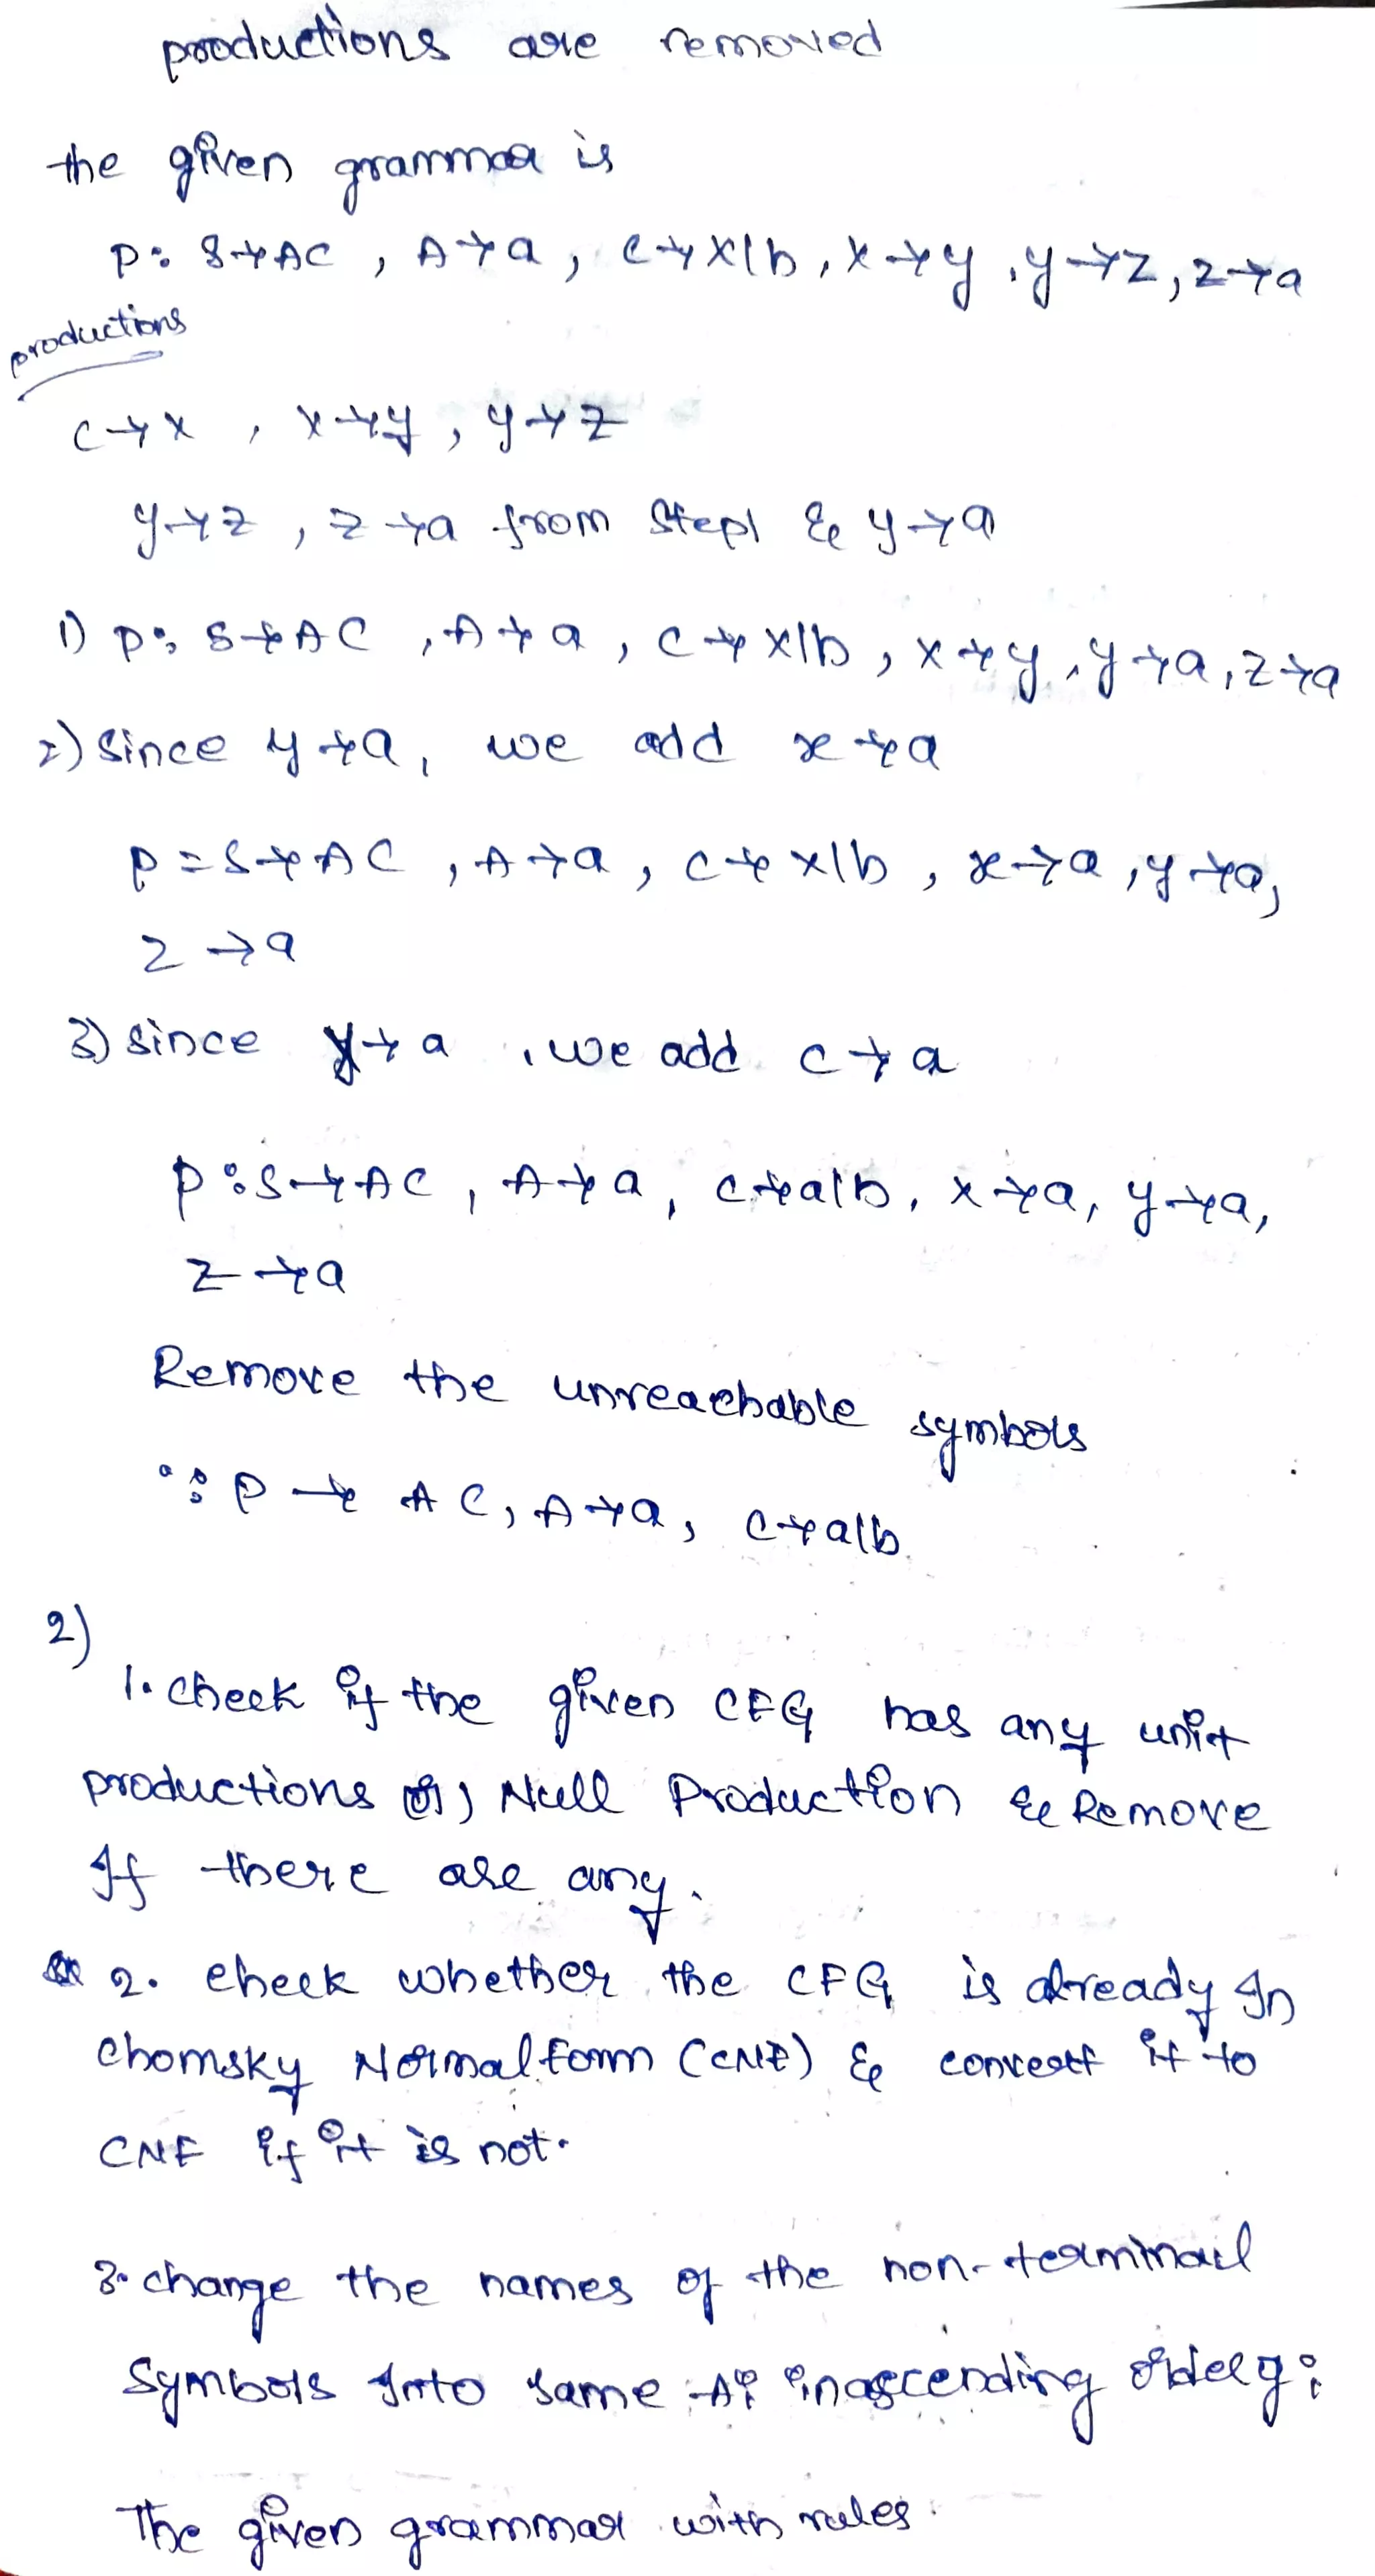 productions are removed
the given grammar is
P: S→AC , A→a , C→X|b , X→y , y→z , z→a
productions
C→X , X→y , y→z
y→z , z→a from Step1 & y→a
1) P: S→AC , A→a , C→X|b , X→y , y→a , z→a
2) Since y→a , we add x→a
P = S→AC , A→a , C→X|b , x→a , y→a,
z→a
3) Since y→a , we add C→a
P: S→AC , A→a , C→a|b , X→a , y→a,
z→a
Remove the unreachable symbols
∴ P → AC , A→a , C→a|b
2)
1. Check if the given CFG has any unit
productions or) Null Production & Remove
If there are any.
2. check whether the CFG is already In
Chomsky Normal form (CNF) & convert it to
CNF if it is not.
3. change the names of the non-terminal
Symbols Into same Ai in ascending order g i
The given grammar with rules